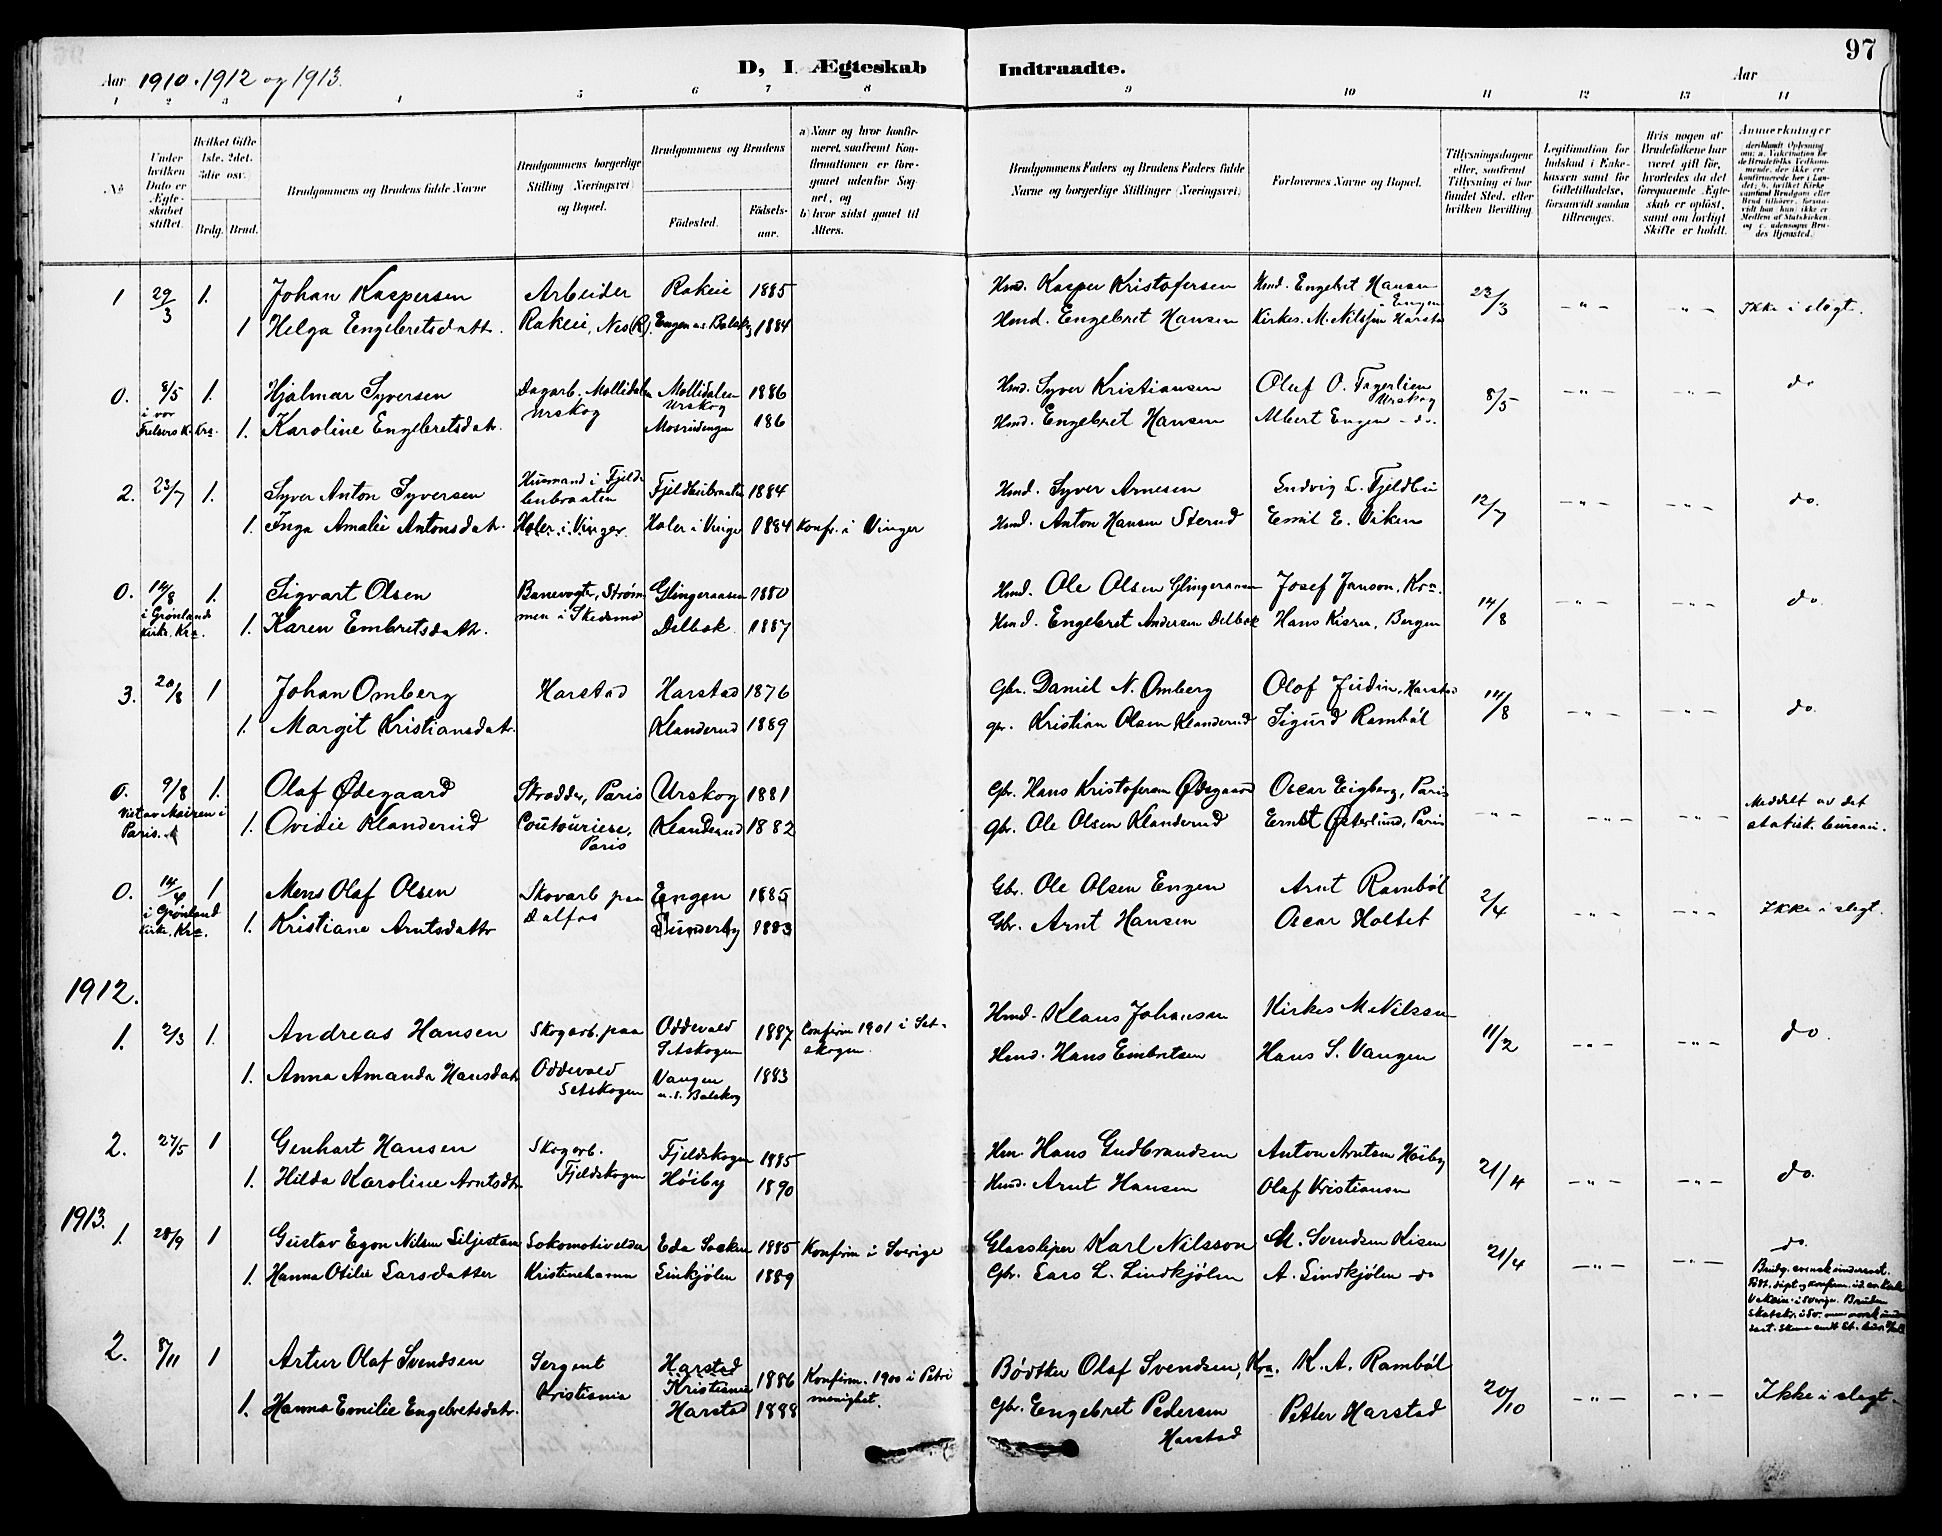 Aar 1910. 1912 og 1913.
D, I Ægteskab Indtraadte.
Aar
97
1 2 3 4 5 6 7 8 9 10 11 12 13 14
No
Under hvilken Dato er Ægteskabet stiftet.
Hvilket Gifte 1ste, 2det, 3die osv.
Brdg. Brud.
Brudgommens og Brudens fulde Navne
Brudgommens borgerlige Stilling (Næringsvei) og Bopæl.
Brudgommens og Brudens
Fødested.
Fødsels-aar.
a) Naar og hvor konfirmeret, saafremt Konfirmationen er foregaaet udenfor Sognet, og
b) hvor sidst gaaet til Alters.
Brudgommens Faders og Brudens Faders fulde Navne og borgerlige Stillinger (Næringsvei)
Forlovernes Navne og Bopæl.
Tillysningsdagene eller, saafremt Tillysning ei har fundet Sted, efter hvilken Bevilling.
Legitimation for Indskud i Enkekassen samt for Giftetilladelse, forsaavidt saadan tiltrænges.
Hvis nogen af Brudefolkene har været gift før, hvorledes da det foregaaende Ægteskab er opløst, samt om lovligt Skifte er holdt.
Anmerkninger
1 29/3 1. Johan Kaspersen Arbeider Rakeie 1885 Hmd. Kasper Kristofersen Hmd. Engebret Hansen Engen 23/3 - " - - " - Ikke i slegt.
1 Helga Engebretsdatr. Rakeie, Nes (R). Engen u. Balsky 1884 Hmd. Engebret Hansen Kirkes. M. Nilssen Harstad
0. 8/5 1. Hjalmar Syversen Dagarb. Mollidalen Mollidalen 1886 Hmd. Syver Kristiansen Olaf O. Fagerlien 8/5 - " - - " - do
i vor Urskog Urskog Urskog
Frelsers K. Kra. 1. Karoline Engebretsdatr. Mosrudengen 186 Hmd. Engebret Hansen Albert Engen - do.
2. 23/7 1. Syver Anton Syversen Husmand i Fjeldbubraaten Fjeldbubraaten 1884 Hmd. Syver Arnesen Ludvig L. Fjeldbu 12/7 - " - - " - do.
1. Inga Amalie Antonsdatr. Holer i Vinger. Holer i Vinger 1884 Konfr. i Vinger Hmd. Anton Hansen Sterud Emil E. Viken
0. 14/8 1. Sigvart Olsen Banevogter, Strømmen i Skedsmo Glingeraasen 1880 Hmd. Ole Olsen Glingeraasen Josef Janson, Kra. 14/8 - " - - " - do.
i Grønlands
kirke. Kra. 1. Karen Embretsdatr. Delbak 1887 Hmd. Engebret Andersen Delbak Hans Kiser, Bergen
3. 20/8 1 Johan Omberg Harstad Harstad 1876 Gbr. Daniel N. Omberg Olof Judin, Harstad 14/8 - " - - " - do.
1. Margit Kristiansdatr. Klanderud 1889 gbr. Kristian Olsen Klanderud Sigurd Rambøl
0. 9/8 1. Olaf Ødegaard Skrædder, Paris Urskog 1881 Gbr. Hans Kristofersen Ødegaard Oscar Eigberg, Paris - " - - " - - " - Meddelt av det statist. bureau.
Viet av Mairen i
Paris. 1. Ovidie Klanderud Coutouriere, Paris Klanderud 1882 Gbr. Ole Olsen Klanderud Ernst Østerlund, Paris
0. 14/4 1 Mens Olaf Olsen Skovarb paa Dalfos Engen 1885 Gbr. Ole Olsen Engen Arnt Rambøl 2/4 - " - - " - Ikke i slegt.
i Grønland
kirke. Kra. 1. Kristiane Arntsdatr Sunderby 1883 Gbr. Arnt Hansen Oscar Holtet
1912.
1. 2/3 1. Andreas Hansen Skogarb. paa Oddevald Setskogen Oddevald Setskogen 1887 Confirm 1901 i Setskogen. Hmd. Klaus Johansen Kirkes M. Nilsson 11/2 - " - - " - do.
1. Anna Amanda Hansdatr Vangen u. s. Balsky 1883 Hmd. Hans Embretsen Hans S. Vangen
2. 27/5 1 Genhart Hansen Skogarb. Fjeldskogen Fjeldskogen 1885 Hm. Hans Gudbrandsen Anton Arntsen Høiby 21/4 - " - - " - do.
1. Hilda Karoline Arntsdtr Høiby 1890 Hmd. Arnt Hansen Olaf Kristiansen
1913.
1. 28/9 1 Gustav Egon Nilsen Siljestam Lokomotivelder Eda Socken 1885 Konfirm i Sverige Glassliper Karl Nilsson M. Svendsen Kisen 21/4 - " - - " - do.
1. Hanna Otilie Larsdatter Kristinehamn Linkjølen 1889 Gbr. Lars L. Lindkjølen A. Lindkjølen do
Brudg. svensk undersaat.
2. 8/11 1 Artur Olaf Svendsen Sergent Kristiania Harstad Kristiania 1886 Konfirm. 1900 i Petri menighet. Bødtker Olaf Svendsen, Kra. K. A. Rambøl 20/10 - " - - " - Ikke i slegt.
1. Hanna Emilie Engebretsdatr. Harstad 1888 Gbr. Engebret Pedersen Harstad Petter Harstad